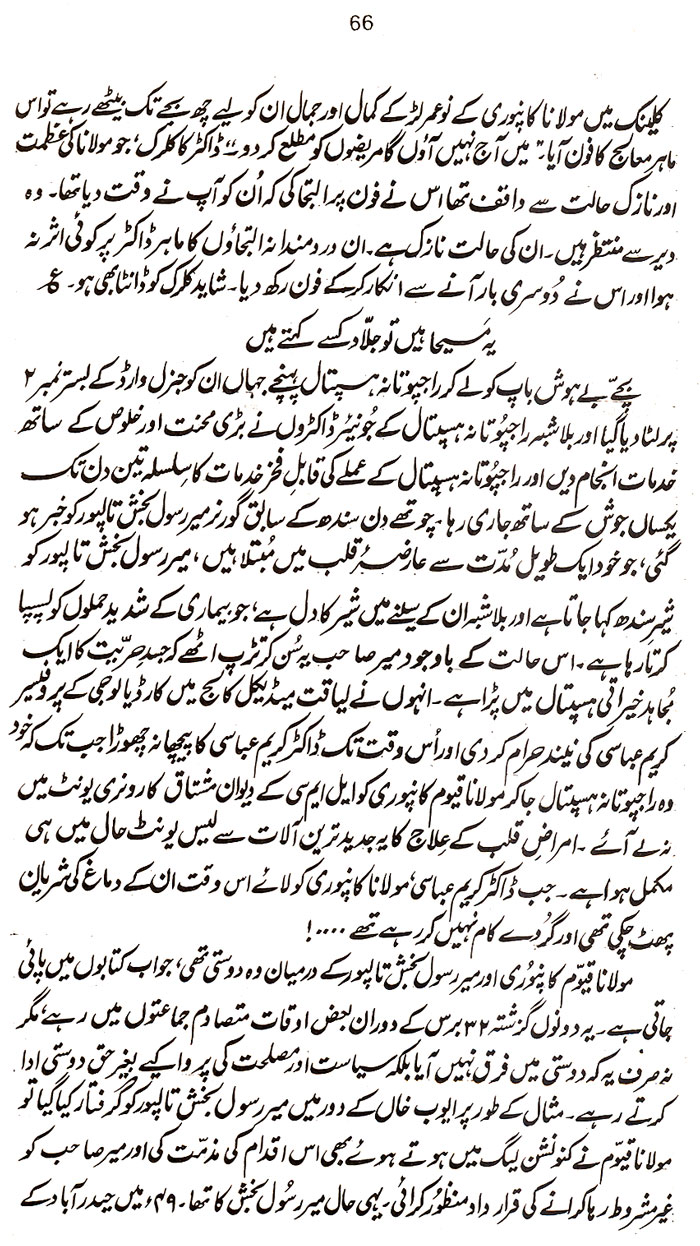 66
کلینک میں مولانا کانپوری کے نوعمر لڑکے کمال اور جمال ان کو لیے چھ بجے تک بیٹھے رہے تو اس
ماہر معالج کا فون آیا۔ "میں آج نہیں آؤں گا مریضوں کو مطلع کر دو"۔ ڈاکٹر کا کلرک، جو مولانا کی عظمت
اور نازک حالت سے واقف تھا اس نے فون پر التجا کی کہ اُن کو آپ نے وقت دیا تھا۔ وہ
دیر سے منتظر ہیں۔ ان کی حالت نازک ہے۔ ان دردمندانہ التجاؤں کا ماہر ڈاکٹر پر کوئی اثر نہ
ہوا اور اس نے دُوسری بار آنے سے انکار کر کے فون رکھ دیا۔ شاید کلرک کو ڈانٹا بھی ہو۔ ؏
یہ مَسیحا ہیں تو جلّاد کسے کہتے ہیں
بچّے بے ہوش باپ کو لے کر راجپوتانہ ہسپتال پہنچے جہاں ان کو جنرل وارڈ کے بستر نمبر ۲
پر لٹا دیا گیا اور بلاشبہ راجپُوتانہ ہسپتال کے جُونیئر ڈاکٹروں نے بڑی محنت اور خلوص کے ساتھ
خدمات انجام دیں اور راجپُوتانہ ہسپتال کے عملے کی قابلِ فخر خدمات کا سِلسلہ تین دن تک
یکساں جوش کے ساتھ جاری رہا۔ چوتھے دن سندھ کے سابق گورنر میر رسول بخش تالپور کو خبر ہو
گئی، جو خود ایک طویل مُدّت سے عارضۂ قلب میں مُبتلا ہیں، میر رسول بخش تالپور کو
شیرِ سندھ کہا جاتا ہے اور بلاشبہ ان کے سینے میں شیر کا دل ہے، جو بیماری کے شدید حملوں کو پسپا
کرتا رہا ہے۔ اس حالت کے باوجود میر صاحب یہ سُن کر تڑپ اٹھے کہ جہدِ حرّیت کا ایک
مُجاہد خیراتی ہسپتال میں پڑا ہے۔ انہوں نے لیاقت میڈیکل کالج میں کارڈیالوجی کے پروفیسر
کریم عباسی کی نیند حرام کر دی اور اُس وقت تک ڈاکٹر کریم عباسی کا پیچھا نہ چھوڑا جب تک کہ خود
وہ راجپُوتانہ ہسپتال جا کر مولانا قیوم کانپوری کو ایل ایم سی کے دیوان مشتاق کارونری یونٹ میں
نہ لے آئے۔ امراضِ قلب کے علاج کا یہ جدید ترین آلات سے لیس یونٹ حال میں ہی
مکمل ہوا ہے۔ جب ڈاکٹر کریم عباسی، مولانا کانپوری کو لائے اس وقت ان کے دماغ کی شریان
پھٹ چکی تھی اور گردے کام نہیں کر رہے تھے ....!
مولانا قیّوم کانپُوری اور میر رسول بخش تالپور کے درمیان وہ دوستی تھی، جو اب کتابوں میں پائی
جاتی ہے۔ یہ دونوں گزشتہ ۳۲ برس کے دوران بعض اوقات متصادم جماعتوں میں رہے، مگر
نہ صرف یہ کہ دوستی میں فرق نہیں آیا بلکہ سیاست اور مصلحت کی پروا کیے بغیر حق دوستی ادا
کرتے رہے۔ مثال کے طور پر ایوب خاں کے دور میں میر رسول بخش تالپور کو گرفتار کیا گیا تو
مولانا قیّوم نے کنونشن لیگ میں ہوتے ہوئے بھی اس اقدام کی مذمّت کی اور میر صاحب کو
غیر مشروط رہا کرانے کی قرارداد منظور کرائی۔ یہی حال میر رسُول بخش کا تھا۔ ۴۹ء میں حیدرآباد کے